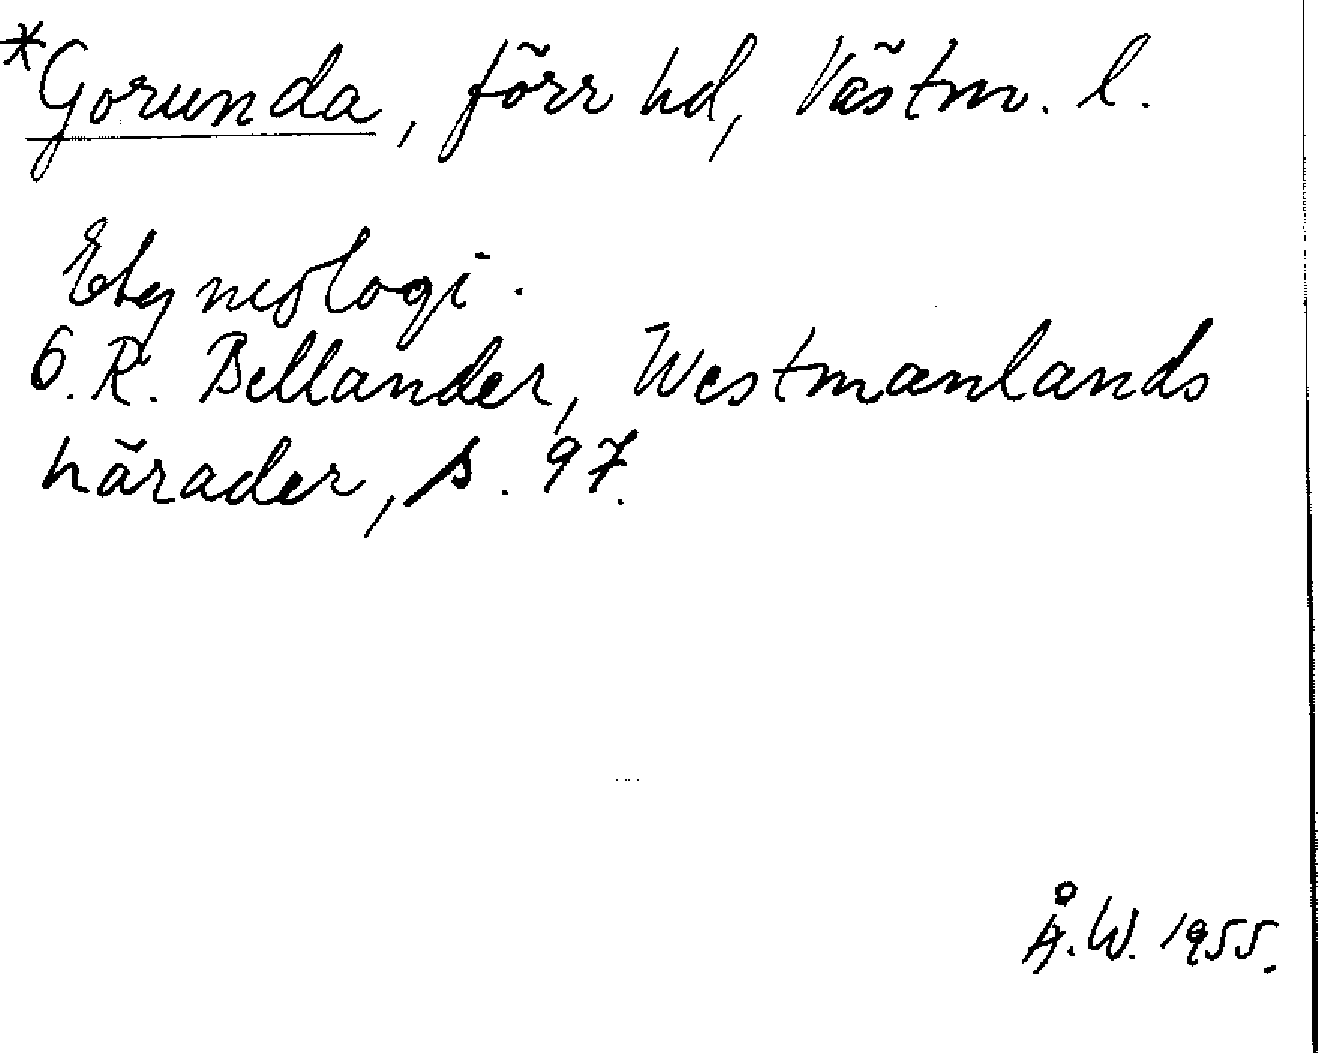 *Gorunda, förr hd, Västm. l.
Etymologi.
G. R. Bellander, Westmanlands
härader, s. 97.
Å. W. 1955.